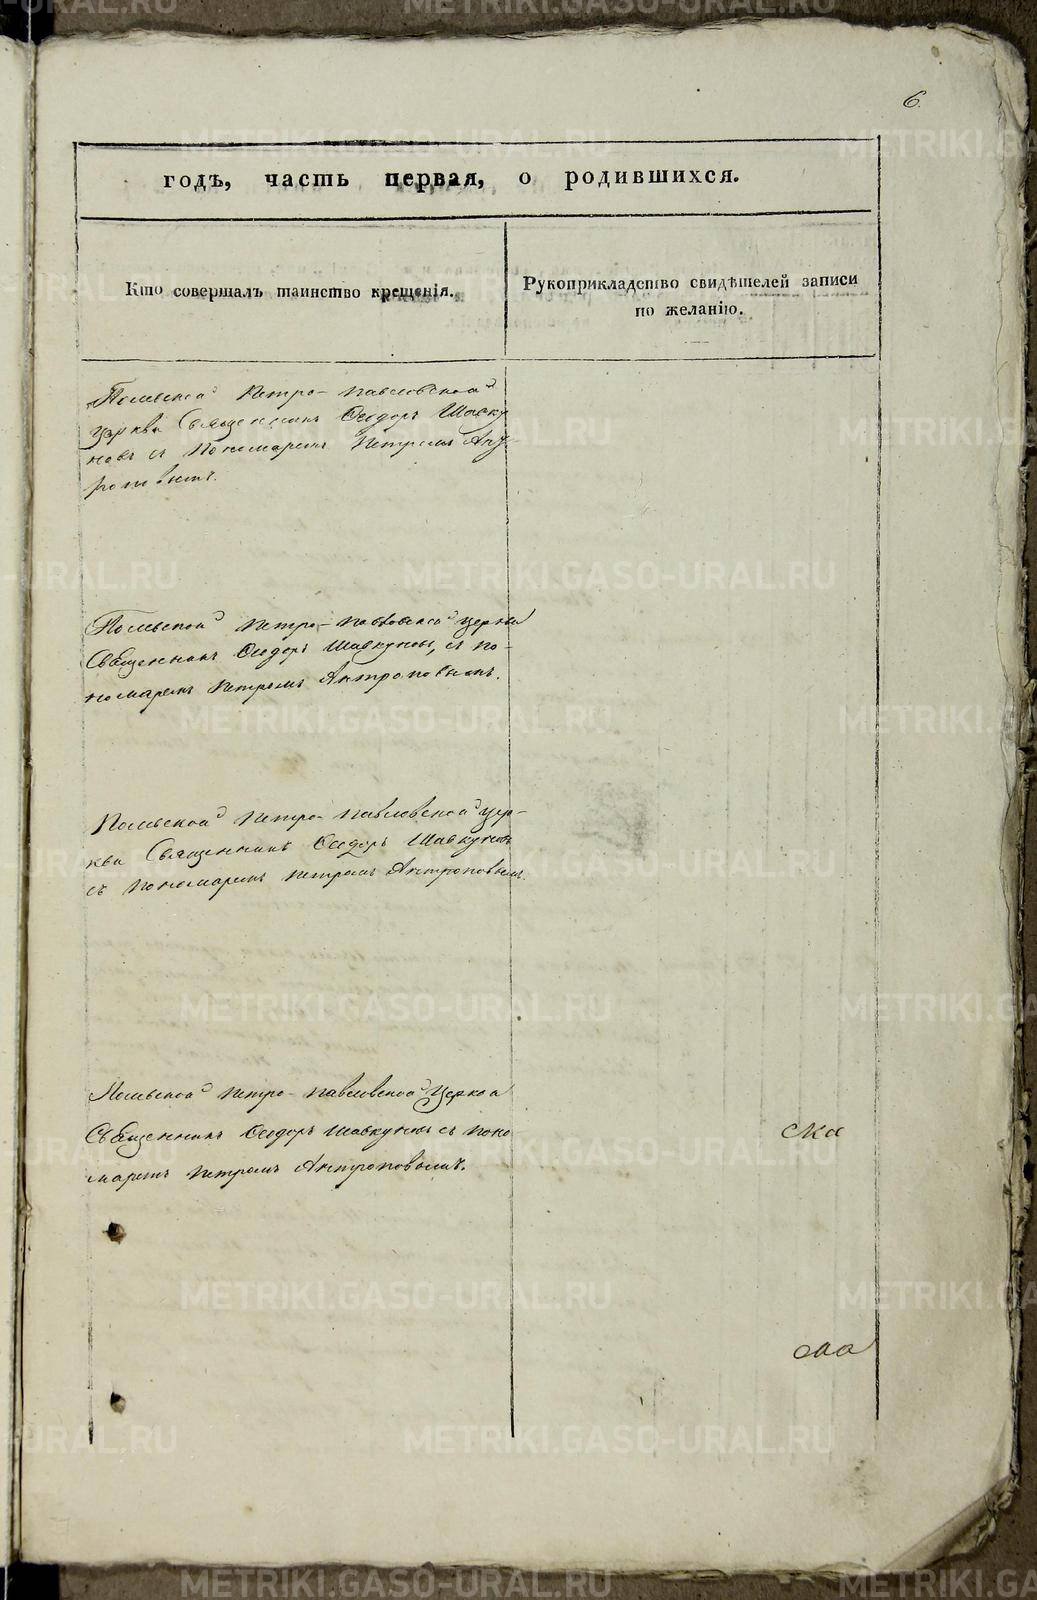 6.
годъ, часть первая, о родившихся.
Кто совершалъ таинство крещенія.
Рукоприкладство свидѣтелей записи
по желанію.
Полевской Петро-Павловской
церкви Священникъ Ѳеодоръ Шавку
новъ съ Пономаремъ Петромъ Ант
роповымъ.
Полевской Петро-Павловской церкви
Священникъ Ѳеодоръ Шавкуновъ, съ по-
номаремъ Петромъ Антроповымъ.
Полевской Петро-Павловской цер-
кви Священникъ Ѳеодоръ Шавкуновъ
съ Пономаремъ Петромъ Антроповымъ.
Полевской Петро-Павловской Церкви
Священникъ Ѳеодоръ Шавкуновъ съ Поно-
маремъ Петромъ Антроповымъ.
ска
METRIKI.GASO-URAL.RU